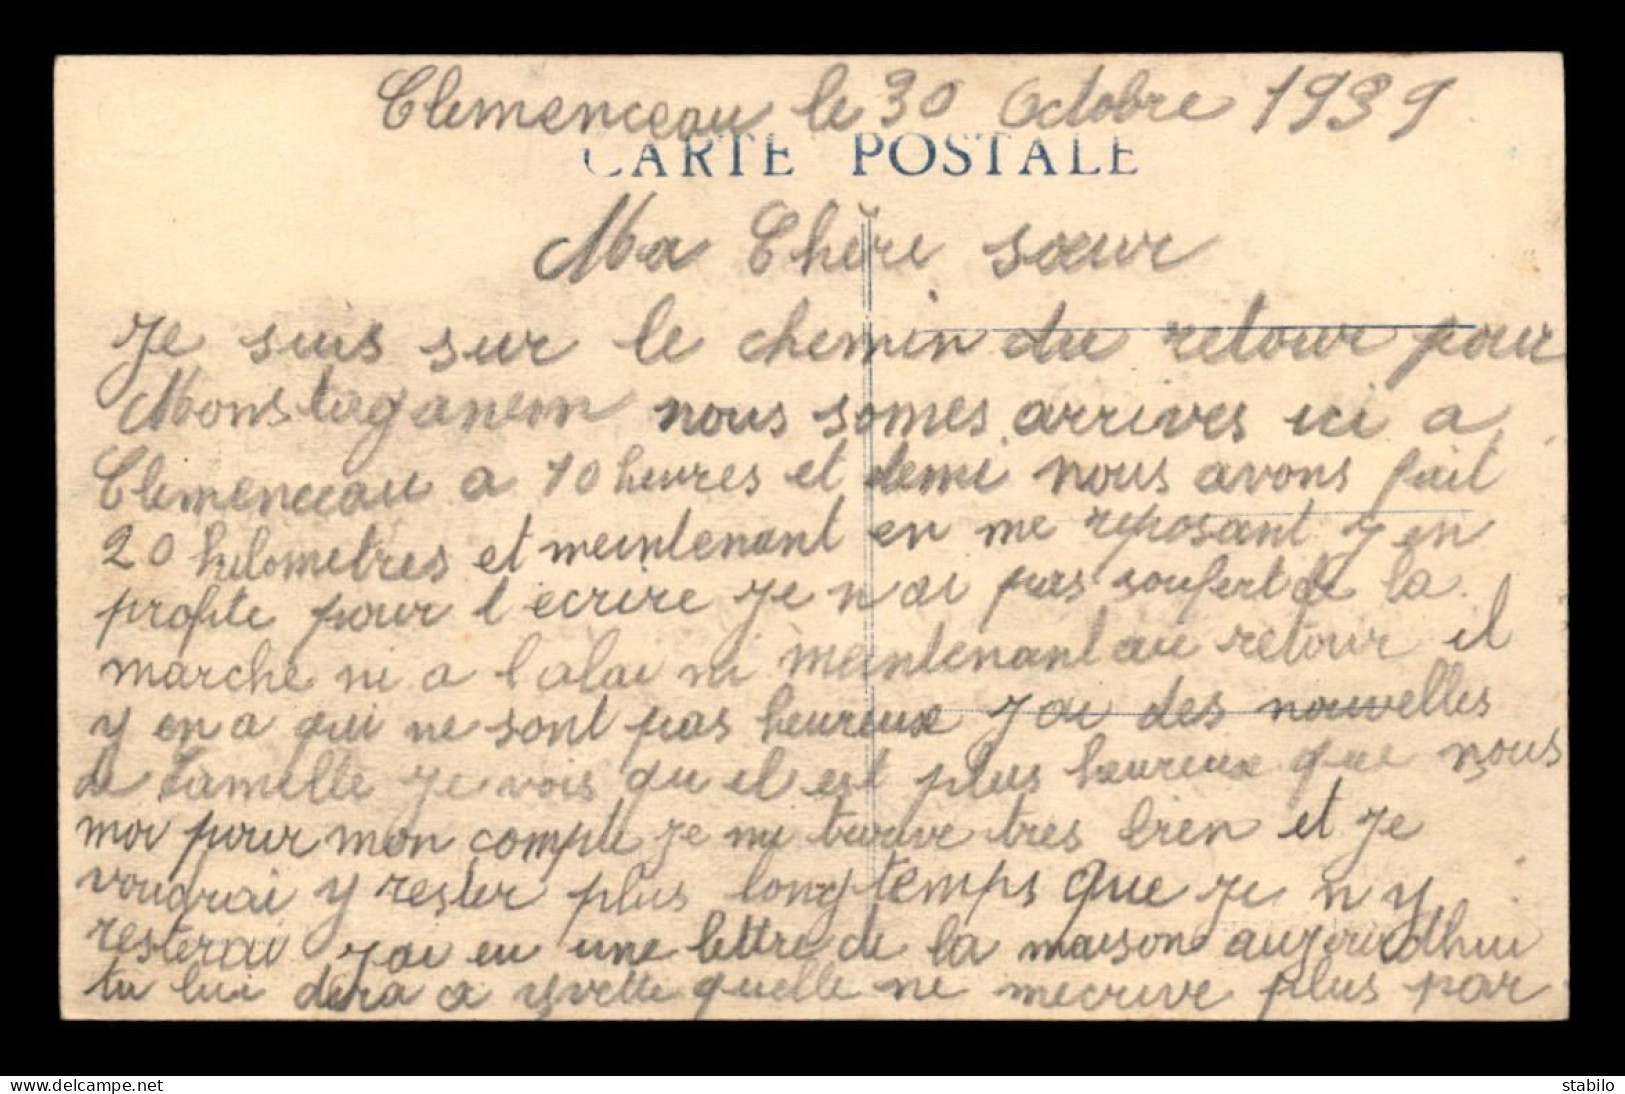 Clemenceau le 30 Octobre 1939
CARTE POSTALE
Ma Chère sœur
Je suis sur le chemin du retour pour
Monstaganem nous somes arrives ici a
Clemenceau a 10 heures et demi nous avons fait
20 kilometres et meintenant en me reposant y en
profite pour t ecrire je n ai pas soufert de la
marche ni a l alai ni meintenant au retour il
y en a qui ne sont pas heureux J ai des nouvelles
de je vois qu il est plus heureux que nous
moi pour mon compte je me truve tres bien et je
voudrai y rester plus longtemps que je n y
resterai J ai eu une lettre de la maison aujourdhui
tu lui dera a yvette quelle ne mecrive plus par
delcampe.net
stabilo